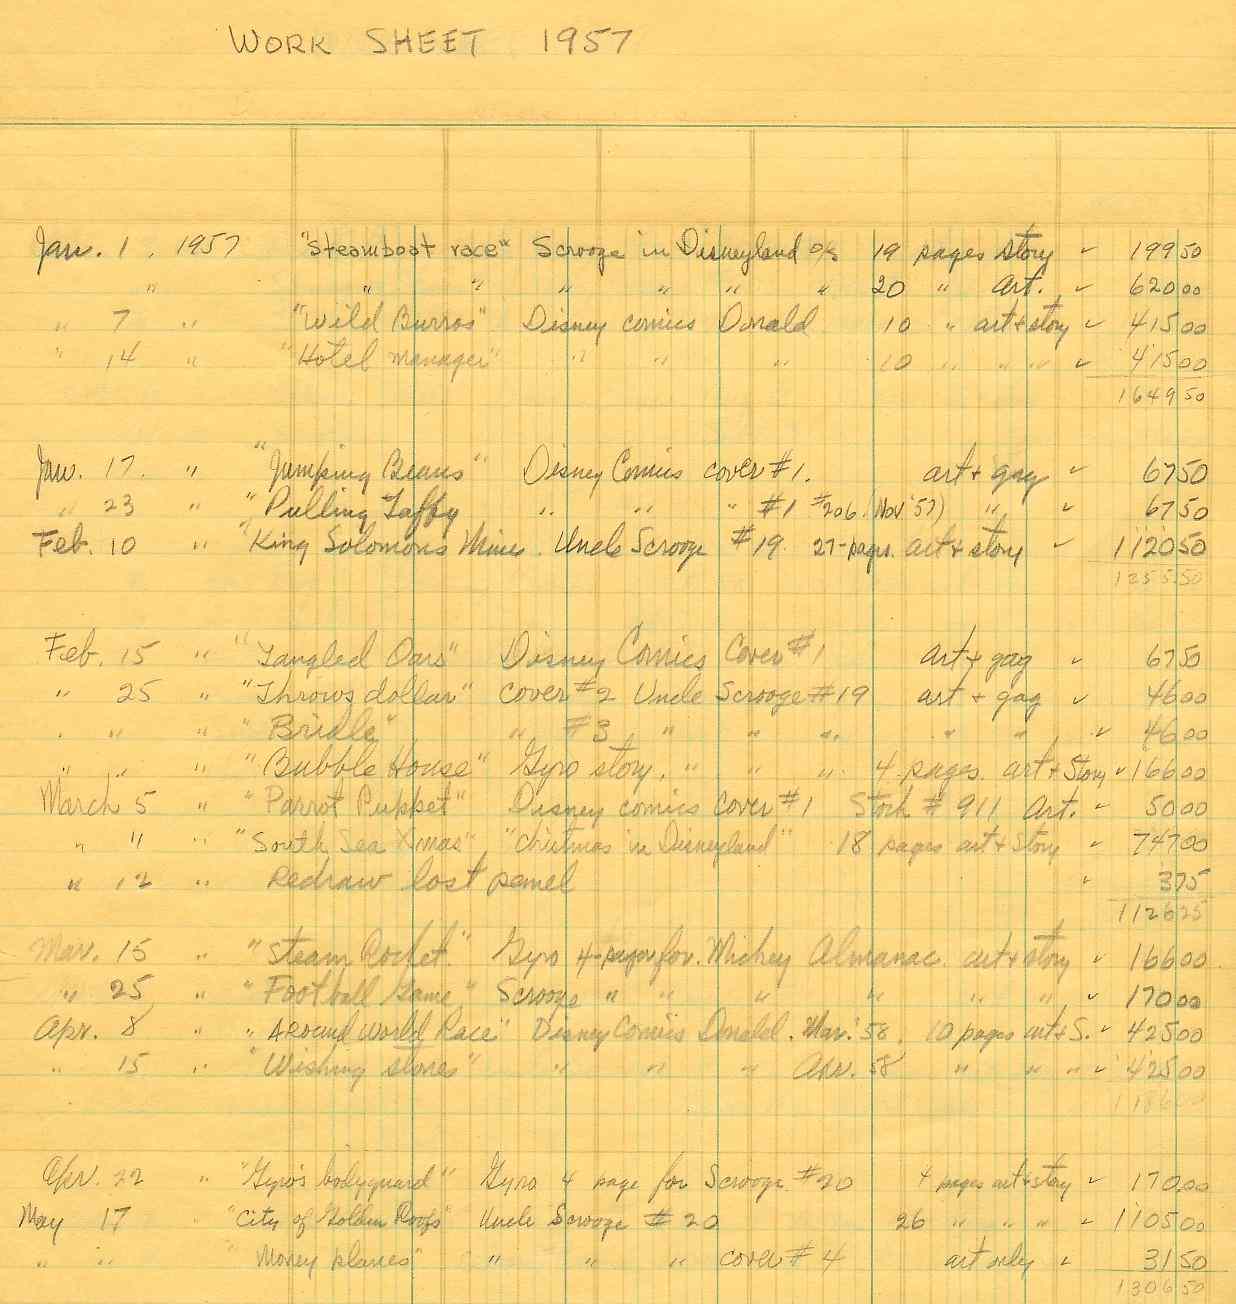 WORK SHEET 1957
Jan. 1, 1957 "Steamboat race" Scrooge in Disneyland O/S 19 pages story " 199 50
" " " " " " " 20 " Art. " 620 00
" 7 " "Wild Burros" Disney comics Donald 10 " art + story " 415 00
" 14 " "Hotel manager" " " " 10 " " " " 415 00
1649 50
Jan. 17. " "Jumping Beans" Disney Comics cover #1. art + gag " 67 50
" 23 " "Pulling Taffy " " " #1 #206 (Nov '57) " " 67 50
Feb. 10 " "King Solomons Mines. Uncle Scrooge #19. 27-pages. art + story " 1120 50
1255 50
Feb. 15 " "Tangled Oars" Disney Comics Cover #1 art + gag " 67 50
" 25 " "Throws dollar" cover #2 Uncle Scrooge #19 art + gag " 46 00
" " " "Bridle" " #3 " " " " " " 46 00
" " " "Bubble House" Gyro story. " " " 4 pages. art + Story " 166 00
March 5 " "Parrot Puppet" Disney comics cover #1 Stock # 911 Art. " 50 00
" " " "South Sea Xmas" "Christmas in Disneyland" 18 pages art + Story " 747 00
" 12 " Redraw lost panel " 3 75
1126 25
Mar. 15 " "Steam Rocket." Gyro 4-pager for. Mickey Almanac. art + story " 166 00
" 25 " "Football Game" Scrooge " " " " " " " 170 00
Apr. 8 " "Around World Race" Disney Comics Donald. Mar. '58. 10 pages art + S. " 425 00
" 15 " "Wishing stones" " " " Apr. 58 " " " " 425 00
1186 00
Apr. 22 " "Gyro's bodyguard" Gyro 4 page for Scrooge #20 4 pages art + story " 170 00
May 17 " "City of Golden Roofs" Uncle Scrooge #20 26 " " " " 1105 00
" " " Money planes" " " " cover #4 art only " 31 50
1306 50